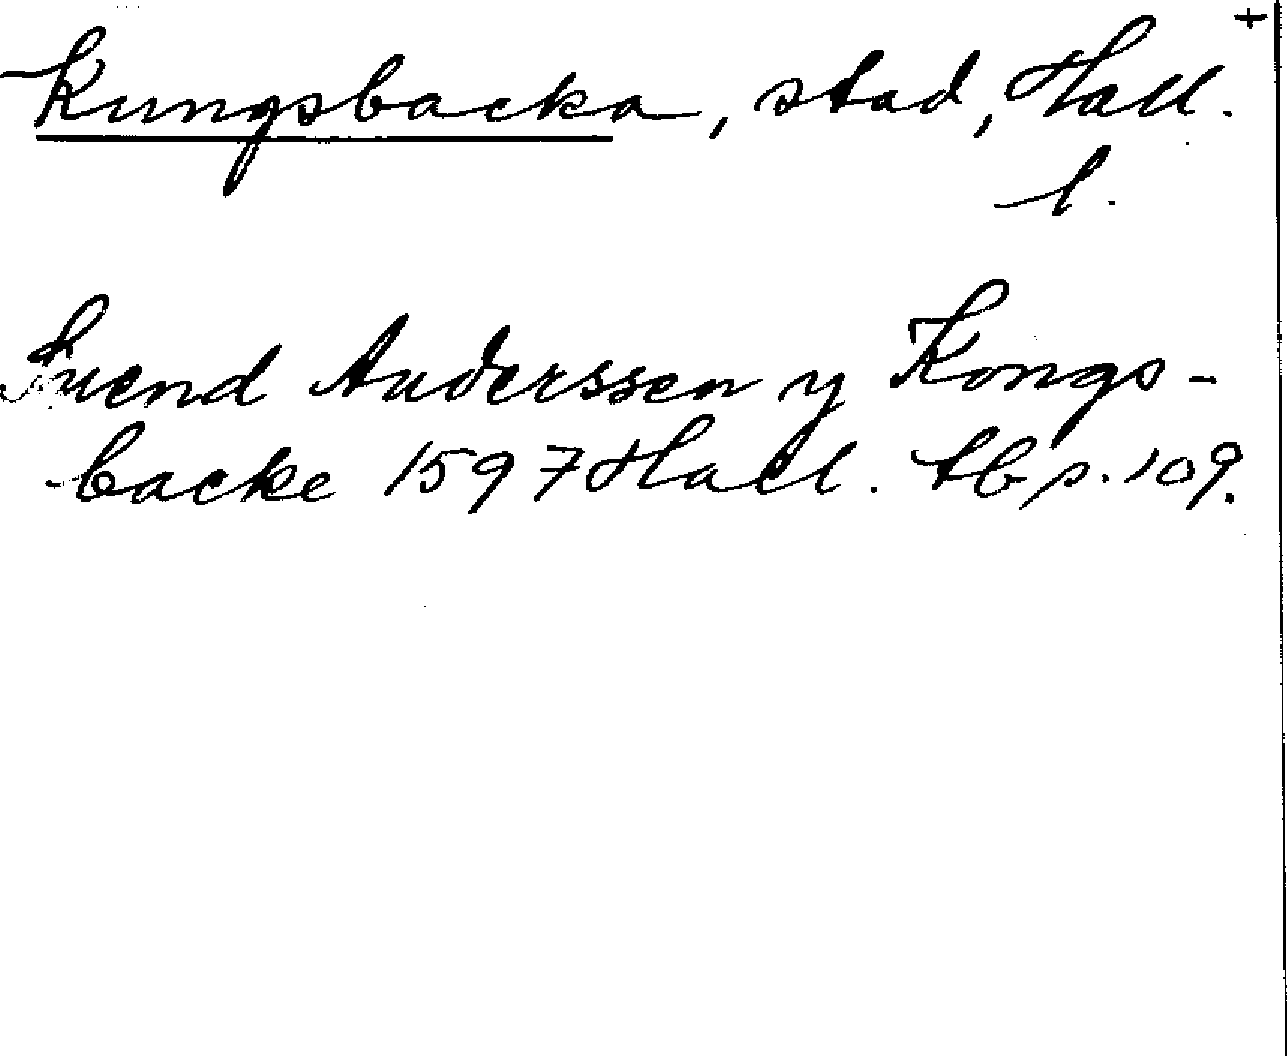 +
Kungsbacka, stad, Hall.
l.
Suend Anderssen y Kongs-
backe 1597 Hall. tb s. 109.